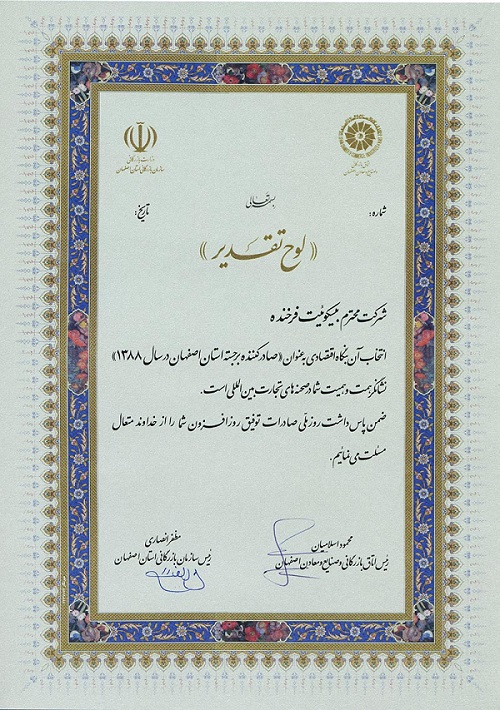 وزارت بازرگانی
سازمان بازرگانی استان اصفهان
اتاق بازرگانی
و صنایع و معادن اصفهان
بسمه تعالی
شماره:
تاریخ:
«لوح تقدیر»
شرکت محترم بیسکوئیت فرخنده
انتخاب آن بنگاه اقتصادی به عنوان «صادر کننده برجسته استان اصفهان در سال ۱۳۸۸»
نشانگر همت و حمیت شما در صحنه های تجارت بین المللی است.
ضمن پاس داشت روز ملی صادرات توفیق روز افزون شما را از خداوند متعال
مسئلت می نمائیم.
محمود اسلامیان
رئیس اتاق بازرگانی و صنایع و معادن اصفهان
مظفر انصاری
رئیس سازمان بازرگانی استان اصفهان